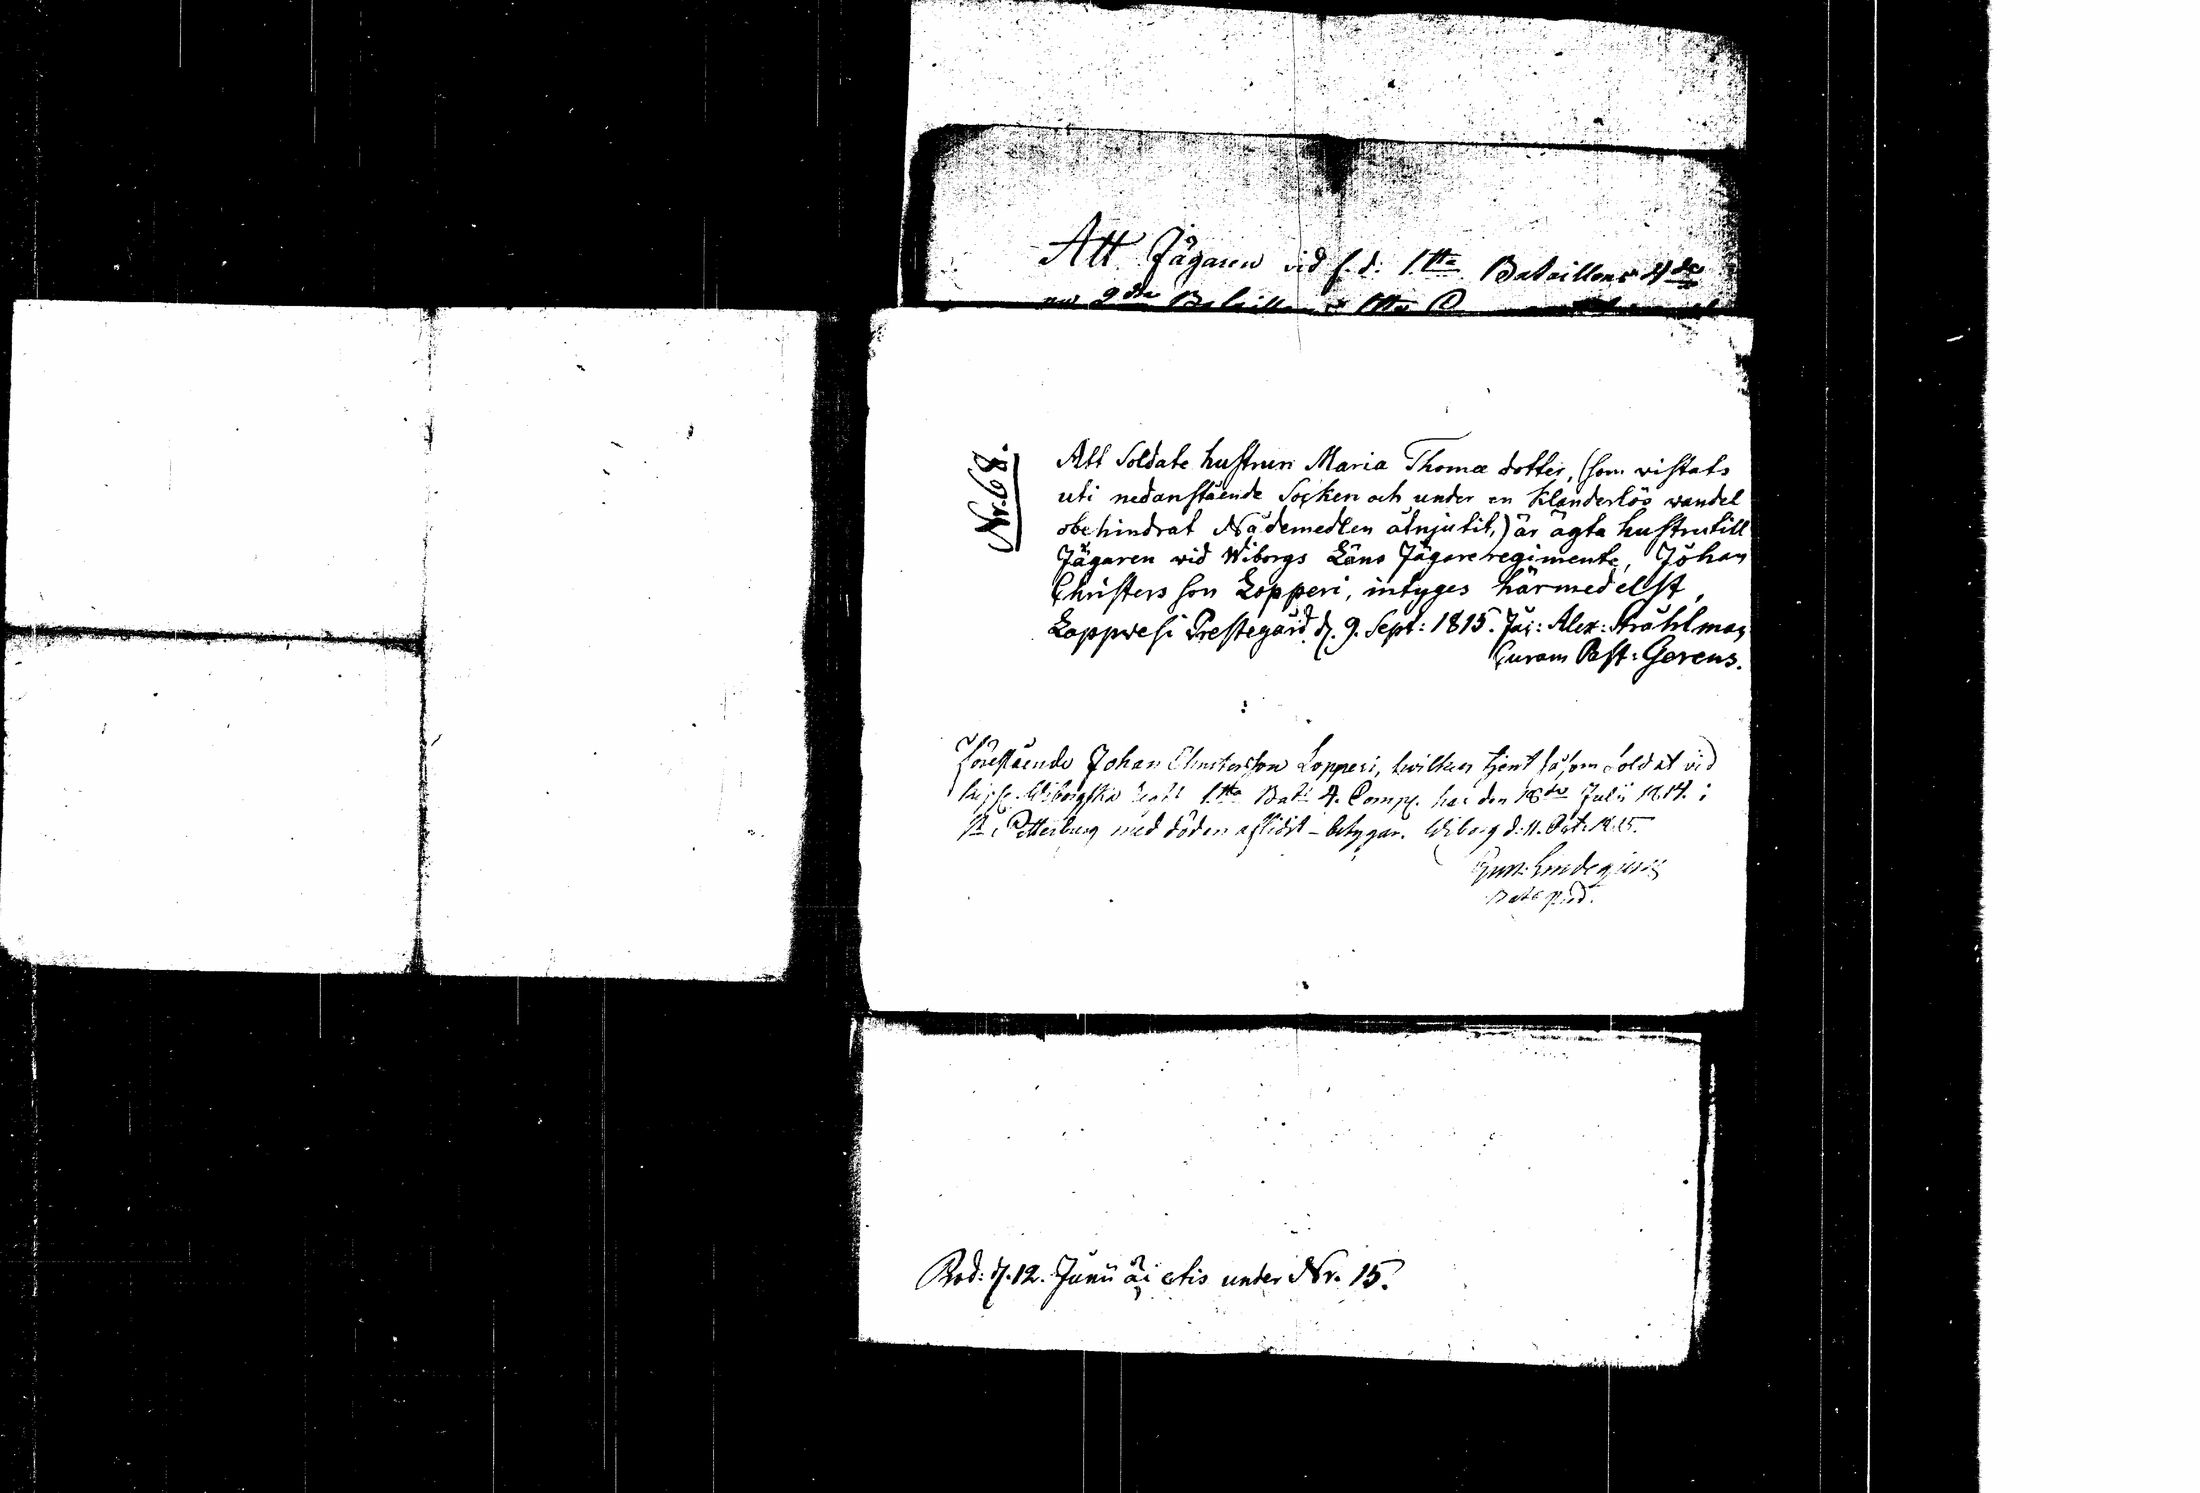 Att Jägaren vid f. d. 1.tta Bataillons 4de
9de 1tta
Nr. 68.
Att Soldate hustrun Maria Thomæ dotter, (som vistats
uti nedanstående Socken och under en klanderlös wandel
obehindrat Nådemedlen åtnjutit,) är ägta hustru till
Jägaren wid Wiborgs Läns Jägareregimente, Johan
Christers son Lopperi, intyges härmedelst,
Lappwesi Prestegård d. 9. Sept: 1815. Jac: Alex: Stråhlman
Curam Past: Gerens.
Förestående Johan Christersson Lopperi, hwilken tjent såsom Soldat vid
Wiborgska 1.tta Bat: 4. Comp. har den 18de Julii 1814. i
St. Petersburg med döden aflidit – betygar. Wiborg d. 11. Oct: 1815.
Prod: d. 12. Junii under Nr. 15.